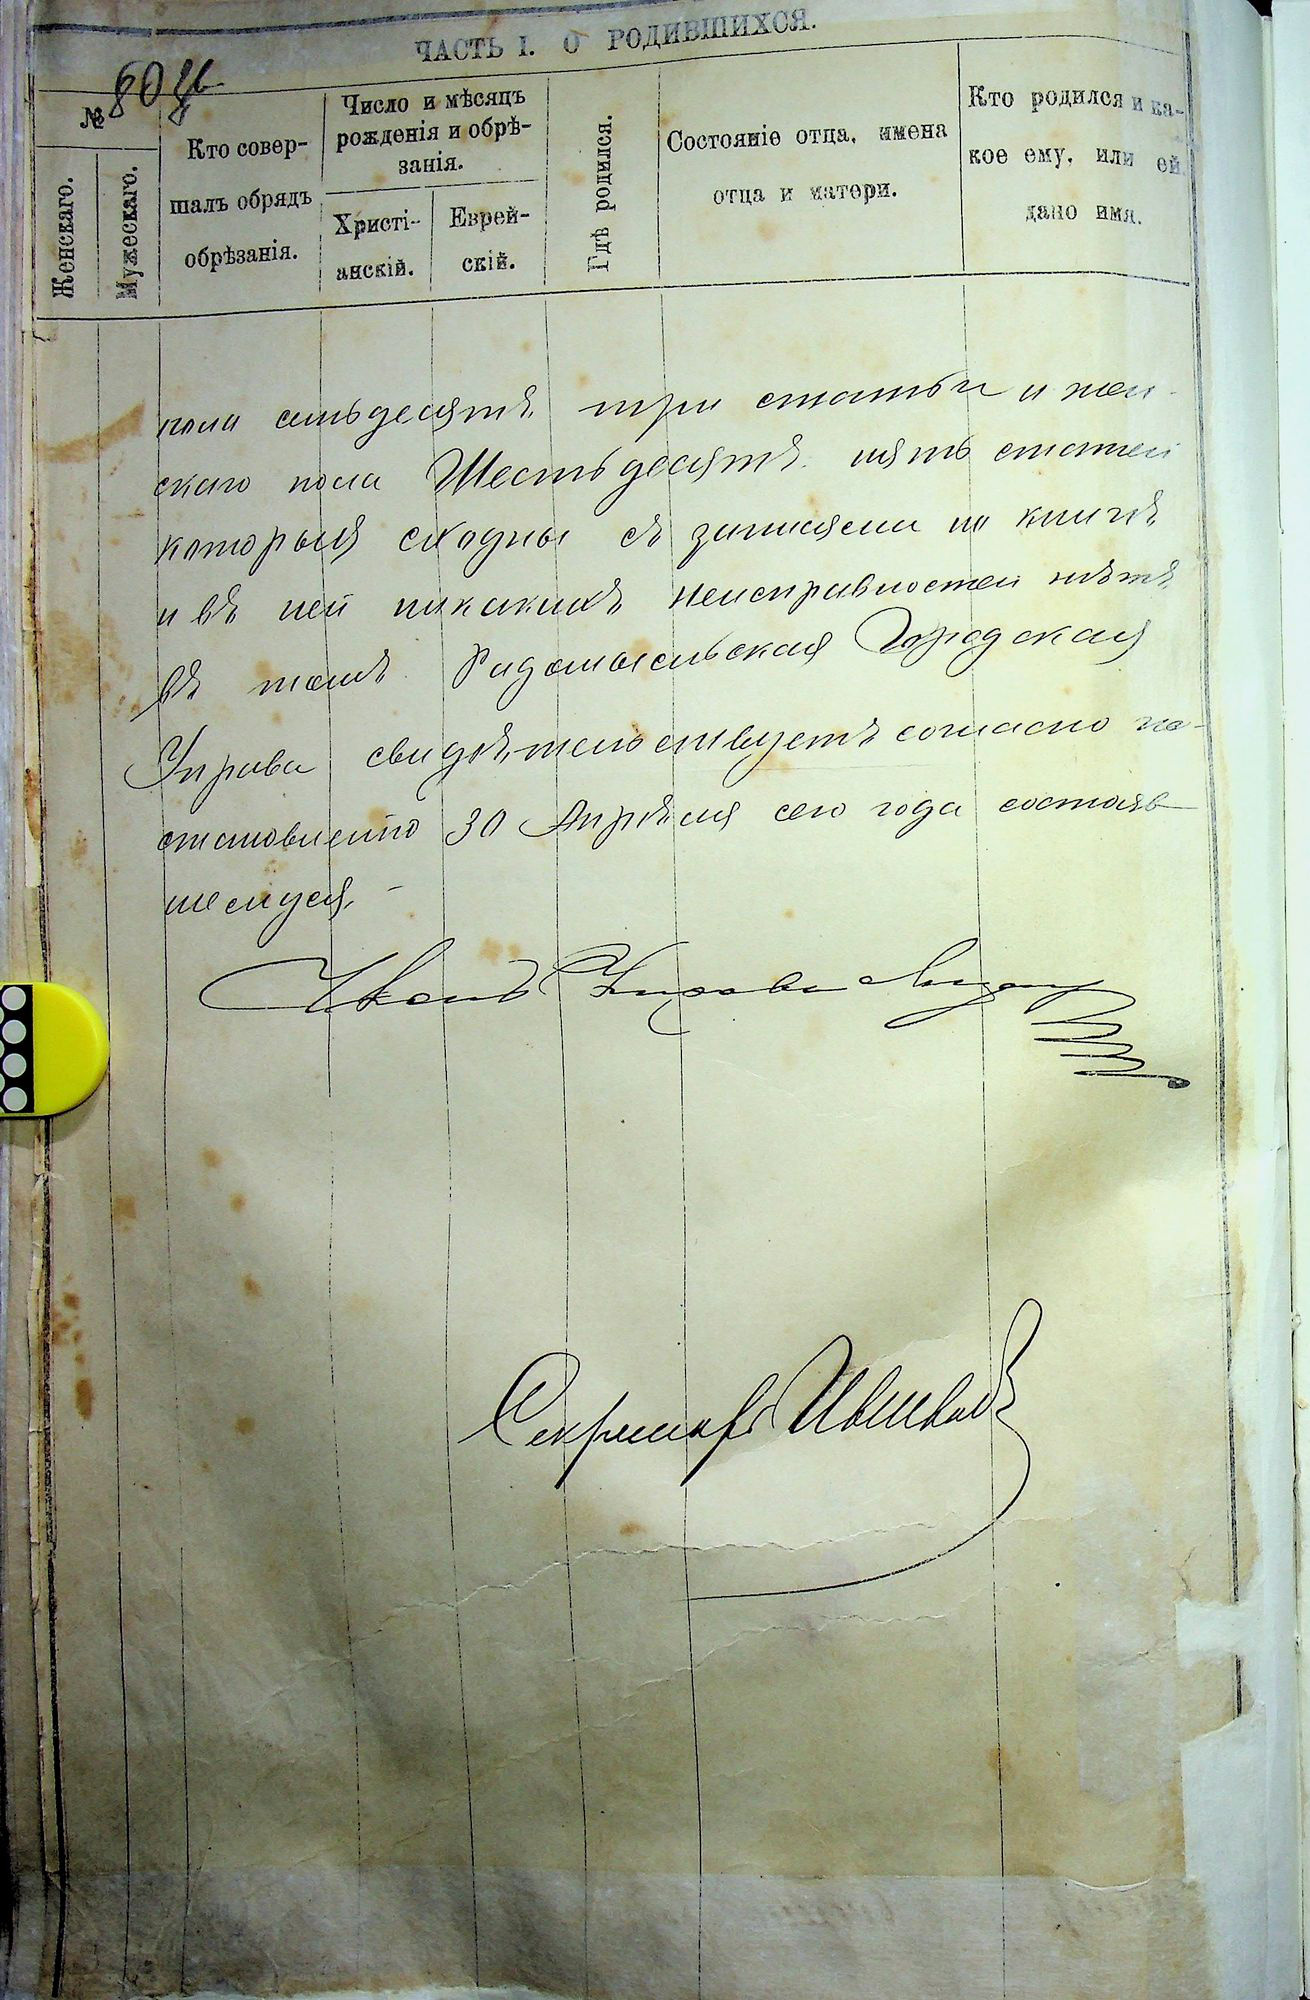 ЧАСТЬ I. О РОДИВШИХСЯ.
№
80
Женскаго.
Мужескаго.
Кто совер-
шалъ обрядъ
обрѣзанія.
Число и мѣсяцъ
рожденія и обрѣ-
занія.
Христі-
анскій.
Еврей-
скій.
Гдѣ родился.
Состояніе отца, имена
отца и матери.
Кто родился и ка-
кое ему, или ей
дано имя.
пола семьдесятъ три статьи и жен-
скаго пола Шестьдесятъ пять статей
которыя сходны съ записями по книгѣ
и въ ней никакихъ неисправностей нѣтъ
въ томъ Радомысльская Городская
Управа свидѣтельствуетъ согласно по-
становленію 30 Апрѣля сего года состояв
шемуся.
Членъ Управы
Секретарь